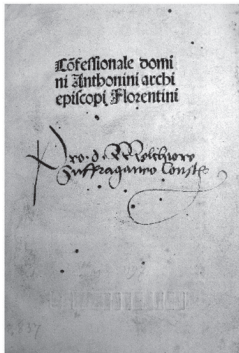 Cõfessionale domi
ni Anthonini archi
episcopi Florentini
Pro . d . Melchiore
Suffraganeo Constꝭ